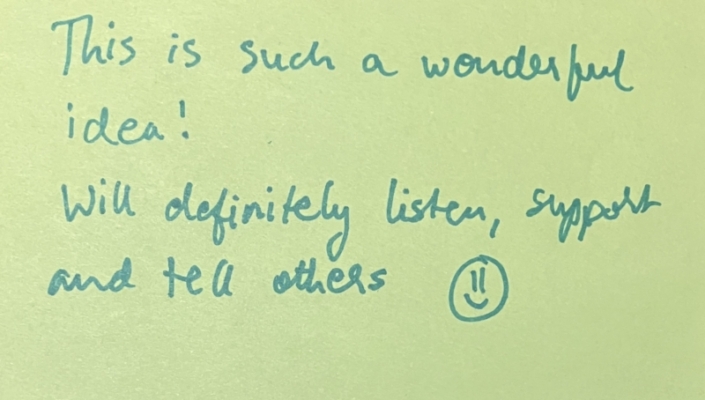 This is such a wonderful
idea!
Will definitely listen, support
and tell others